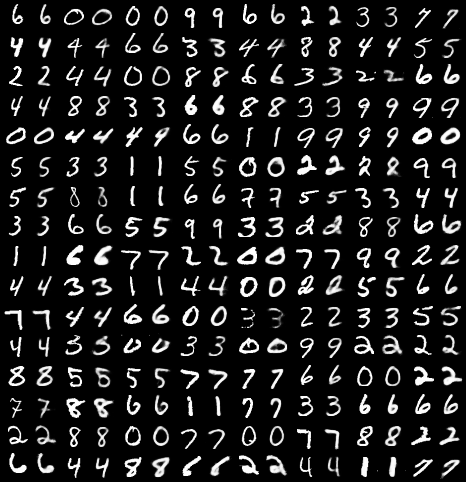 6 6 0 0 0 0 9 9 6 6 2 2 3 3 7 7
4 4 4 4 6 6 3 3 4 4 8 8 4 4 5 5
2 2 4 4 0 0 8 8 6 6 3 3 2 2 6 6
4 4 8 8 3 3 6 6 8 8 3 3 9 9 9 9
0 0 4 4 4 9 6 6 1 1 9 9 9 9 0 0
5 5 3 3 1 1 5 5 0 0 2 2 8 8 9 9
5 5 8 8 1 1 6 6 7 7 5 5 3 3 4 4
3 3 6 6 5 5 9 9 3 3 2 2 8 8 6 6
1 1 6 6 7 7 2 2 0 0 7 7 9 9 2 2
4 4 3 3 1 1 4 4 0 0 2 2 5 5 6 6
7 7 4 4 6 6 0 0 3 3 2 2 3 3 5 5
4 4 3 3 0 0 3 3 0 0 9 9 2 2 2 2
8 8 5 5 5 5 7 7 7 7 6 6 0 0 2 2
7 7 8 8 6 6 1 1 7 7 3 3 6 6 6 6
2 2 8 8 0 0 7 7 0 0 7 7 8 8 2 2
6 6 4 4 8 8 6 6 2 2 4 4 1 1 7 7